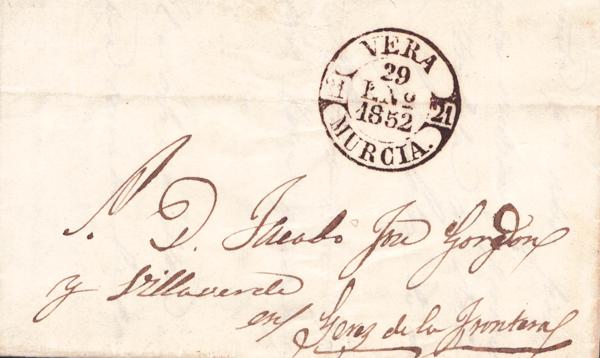 VERA
29
EN.º
1852
21
MURCIA.
S. D. Jacobo José Gordon
y Villaverde
en Jerez de la Frontera